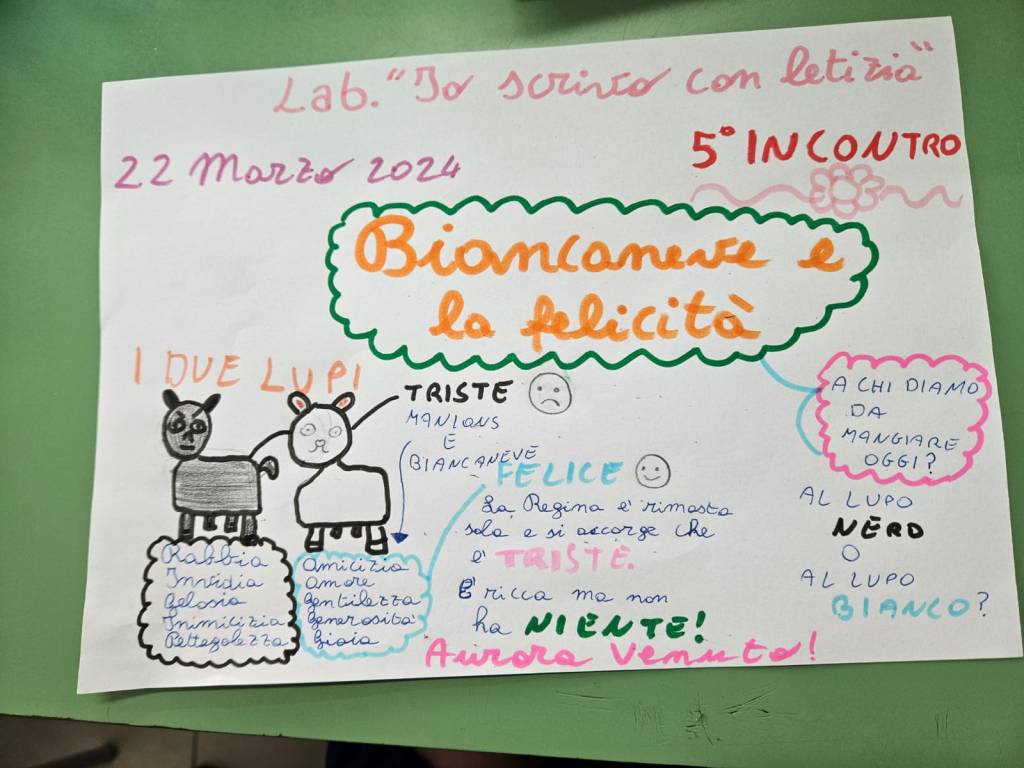 Lab. "Io scrivo con letizia"
22 Marzo 2024
5° INCONTRO
Biancaneve e
la felicità
I DUE LUPI
TRISTE
MANIONS
E
BIANCANEVE
FELICE
La Regina è rimasta
sola e si accorge che
è TRISTE.
È ricca ma non
ha NIENTE!
Rabbia
Invidia
Gelosia
Inimicizia
Pettegolezza
Amicizia
Amore
Gentilezza
Generosità
Gioia
A CHI DIAMO
DA
MANGIARE
OGGI?
AL LUPO
NERO
O
AL LUPO
BIANCO?
Aurora Venuto!